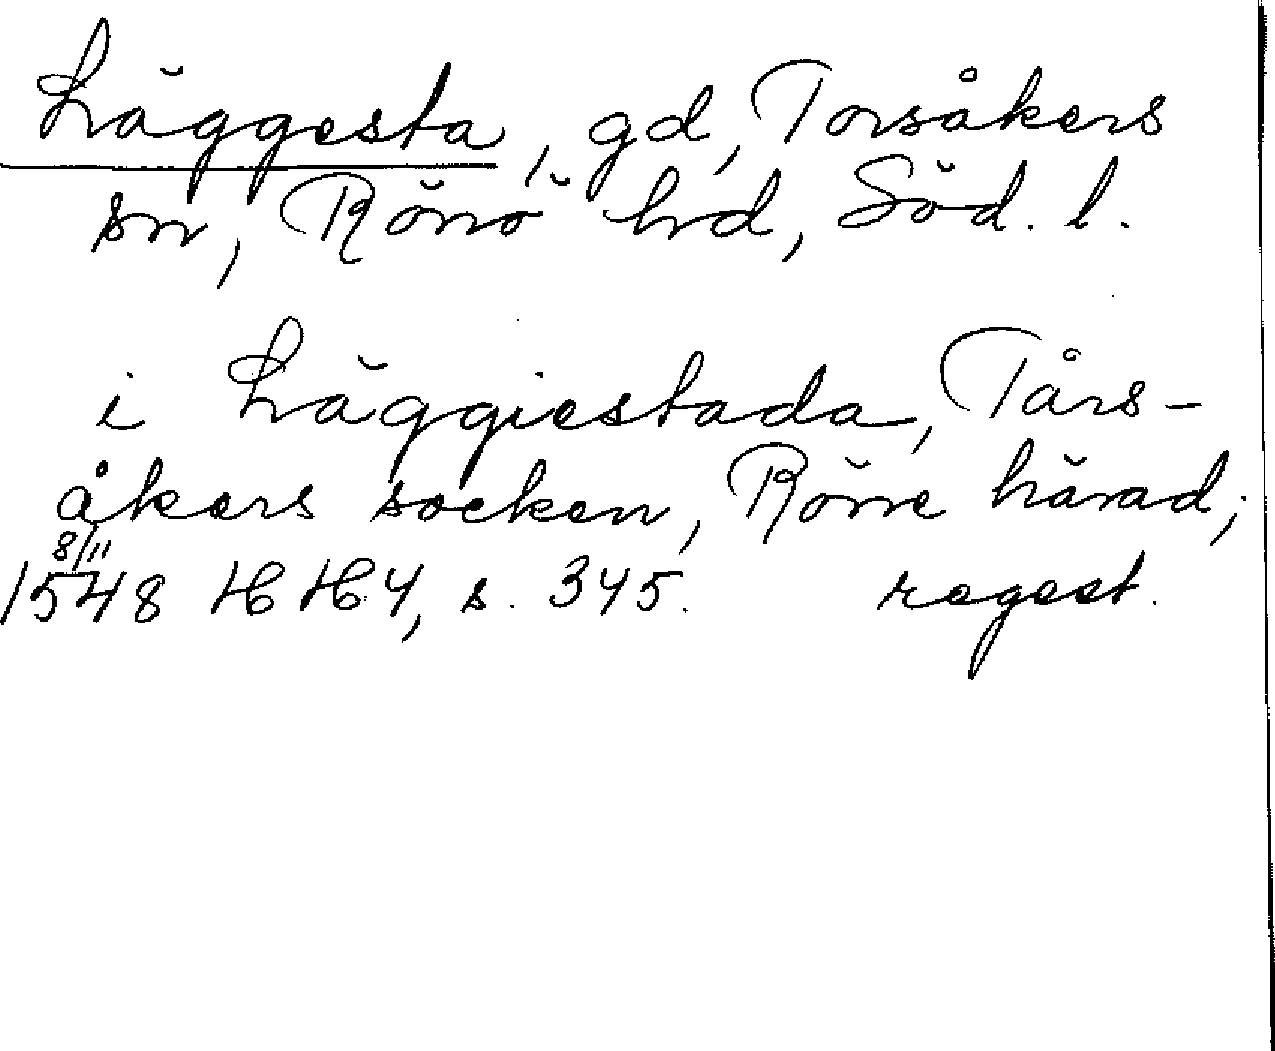 Läggesta, gd, Torsåkers
sn, Rönö hd, Söd. l.
i Läggiestada, Tårs-
åkers socken, Röne härad;
8/11
1548 HH 4, s. 345. regest.